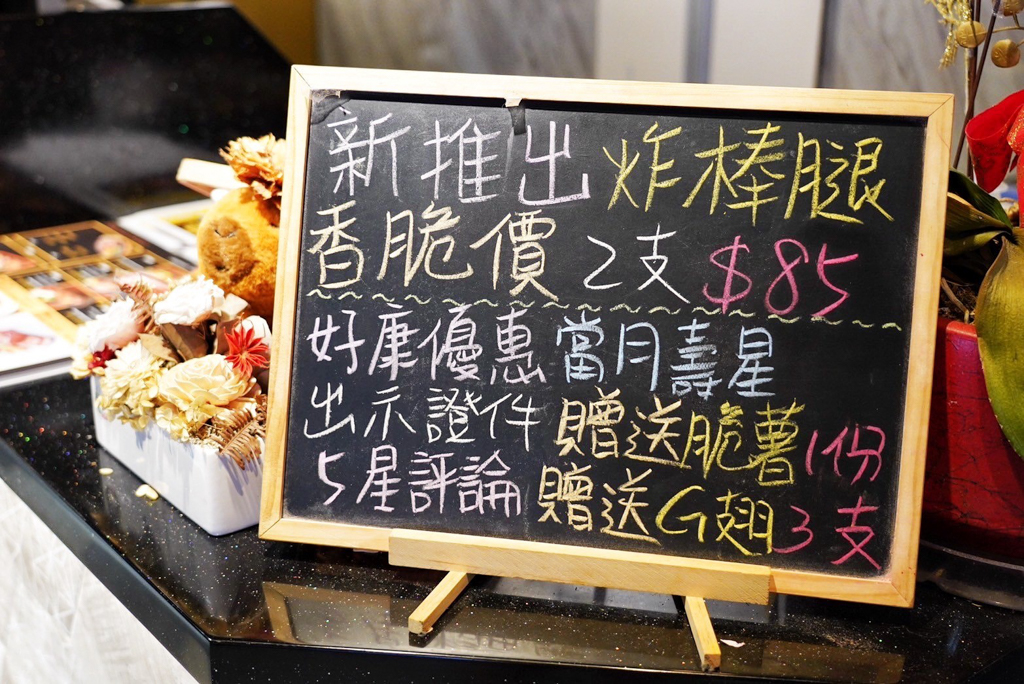 新推出 炸棒腿
香脆價 2支 $85
好康優惠 當月壽星
出示證件 贈送脆薯1份
5星評論 贈送G翅3支